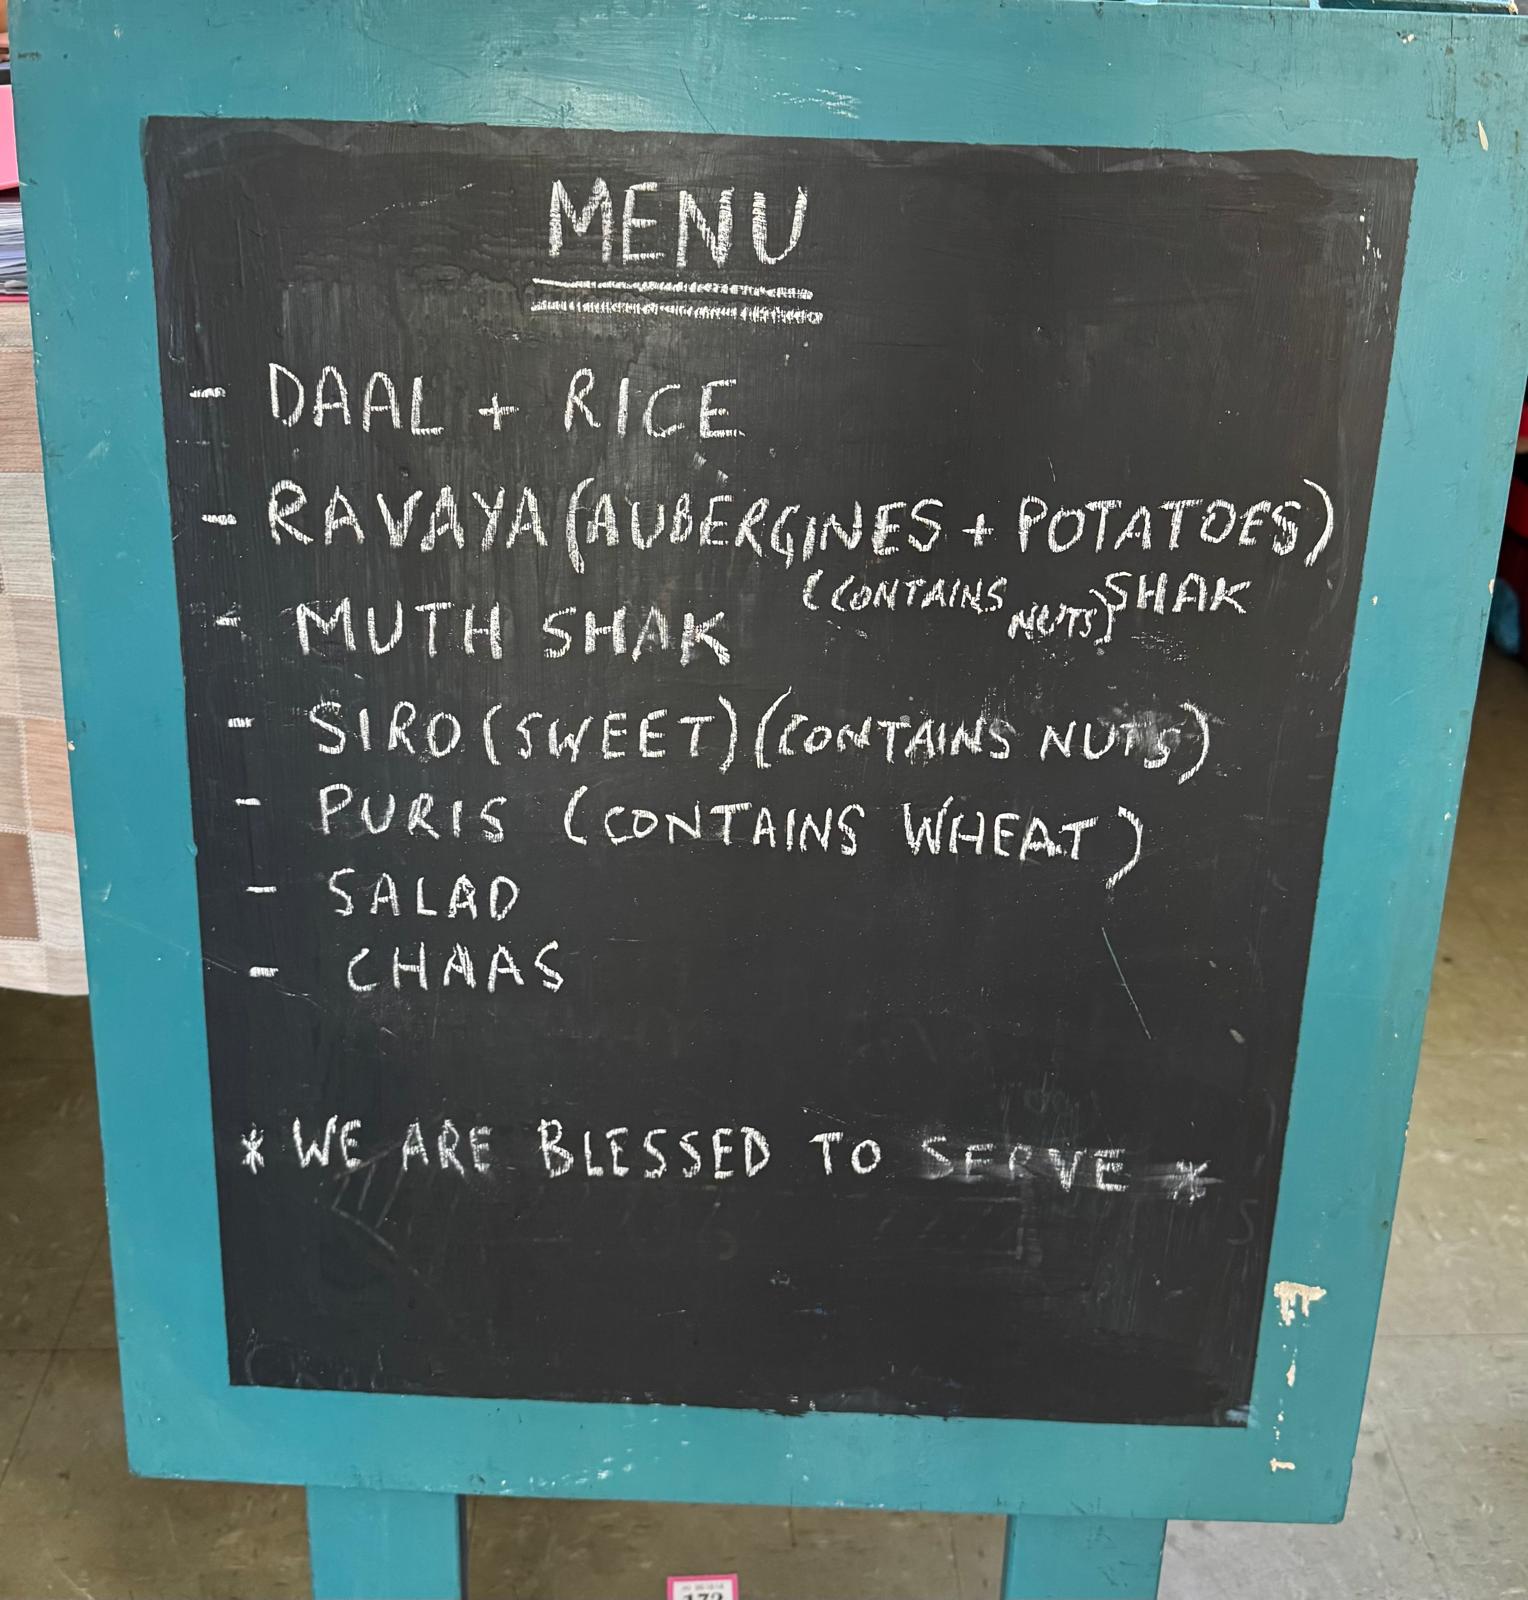 MENU
- DAAL + RICE
- RAVAYA (AUBERGINES + POTATOES)
(CONTAINS NUTS) SHAK
- MUTH SHAK
- SIRO (SWEET) (CONTAINS NUTS)
- PURIS (CONTAINS WHEAT)
- SALAD
- CHAAS
* WE ARE BLESSED TO SERVE *
173